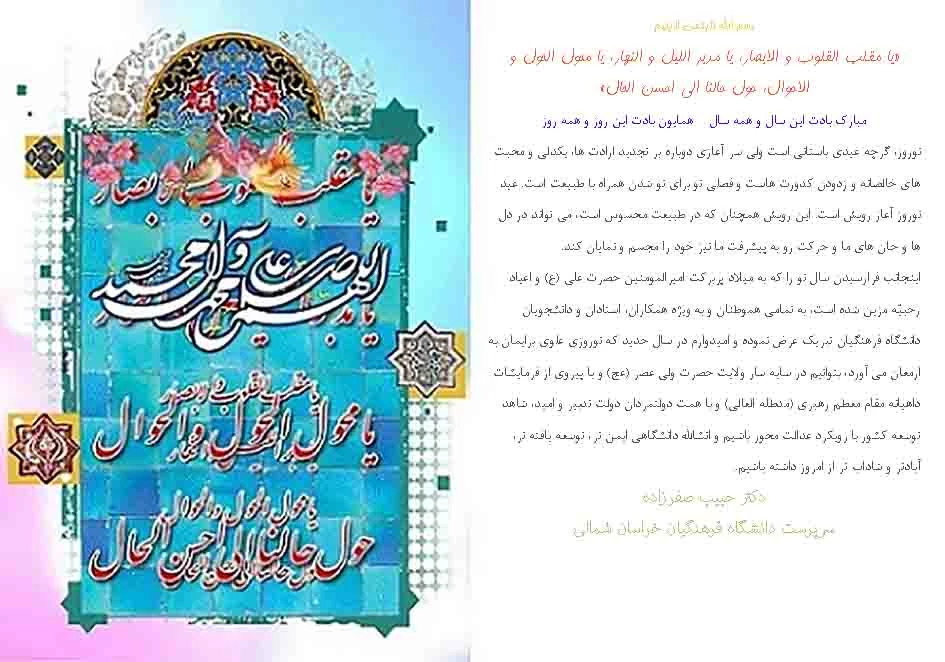 بسم الله الرحمن الرحیم
«یا مقلب القلوب و الابصار، یا مدبر اللیل و النهار، یا محول الحول و
الاحوال، حول حالنا الی احسن الحال»
مبارک بادت این سال و همه سال همایون بادت این روز و همه روز
نوروز، گرچه عیدی باستانی است ولی سر آغازی دوباره بر تجدید ارادت ها، یکدلی و محبت
های خالصانه و زدودن کدورت هاست و فصلی نو برای نو شدن همراه با طبیعت است. عید
نوروز آغاز رویش است. این رویش همچنان که در طبیعت محسوس است، می تواند در دل
ها و جان های ما و حرکت رو به پیشرفت ما نیز خود را مجسم و نمایان کند.
اینجانب فرارسیدن سال نو را که به میلاد پربرکت امیرالمومنین حضرت علی (ع) و اعیاد
رجبیّه مزین شده است، به تمامی هموطنان و به ویژه همکاران، استادان و دانشجویان
دانشگاه فرهنگیان تبریک عرض نموده و امیدوارم در سال جدید که نوروزی علوی برایمان به
ارمغان می آورد، بتوانیم در سایه سار ولایت حضرت ولی عصر (عج) و با پیروی از فرمایشات
داهیانه مقام معظم رهبری (مدظله العالی) و با همت دولتمردان دولت تدبیر و امید، شاهد
توسعه کشور با رویکرد عدالت محور باشیم و انشالله دانشگاهی ایمن تر، توسعه یافته تر،
آبادتر و شاداب تر از امروز داشته باشیم.
دکتر حبیب صفرزاده
سرپرست دانشگاه فرهنگیان خراسان شمالی
یا مقلب القلوب و الابصار
یا محول الحول و الاحوال
حول حالنا الی احسن الحال